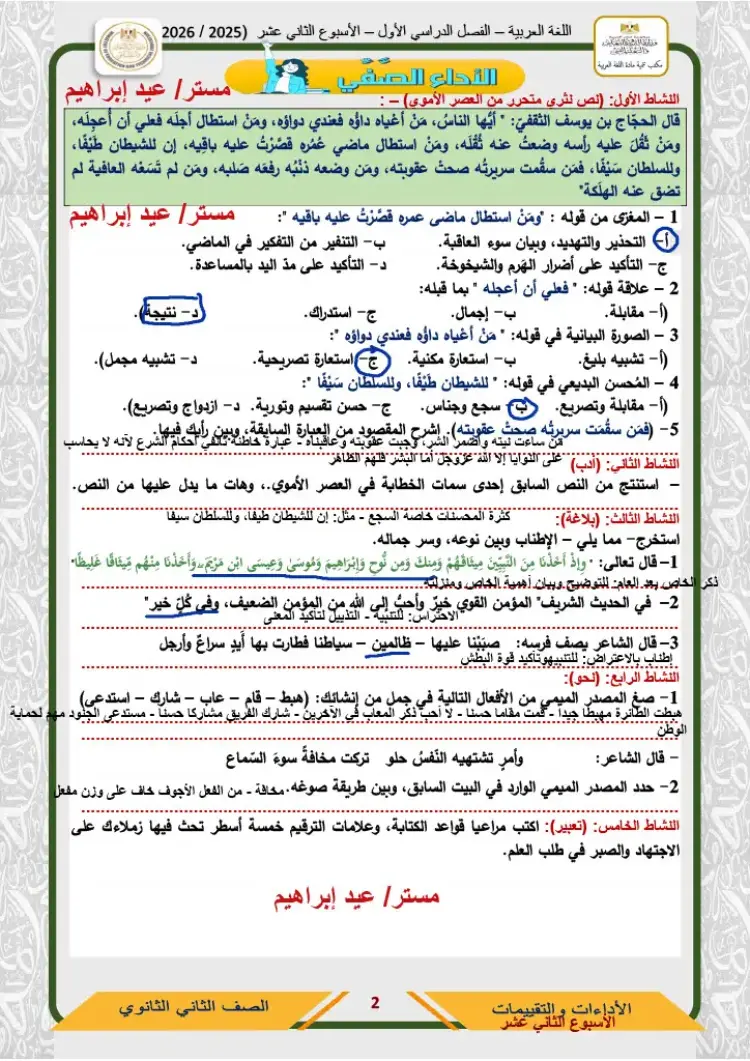 اللغة العربية – الفصل الدراسي الأول – الأسبوع الثاني عشر (2025 / 2026
مكتب تنمية مادة اللغة العربية
الأداء الصفي
مستر/ عيد إبراهيم
النشاط الأول: (نص نثري متحرر من العصر الأموي) – :
قال الحجّاج بن يوسف الثقفيّ: " أيُّها الناسُ، مَنْ أعْياه داؤُه فعندي دواؤه، ومَنْ استطال أجلَه فعلي أن أُعجِلَه،
ومَنْ ثَقُلَ عليه رأسه وضعتُ عنه ثُقْلَه، ومَنْ استطال ماضي عُمُره قصَّرْتُ عليه باقِيه، إن للشيطان طَيْفًا،
وللسلطان سَيْفًا، فمَن سقُمت سريرتُه صحتْ عقوبته، ومَن وضعه ذنْبُه رفعَه صلبه، ومَن لم تَسَعْه العافية لم
تضق عنه الهلَكة"
مستر/ عيد إبراهيم
1 – المغزى من قوله : "ومَنْ استطال ماضى عمره قصَّرْتُ عليه باقيه ":
أ– التحذير والتهديد، وبيان سوء العاقبة. ب– التنفير من التفكير في الماضي.
ج– التأكيد على أضرار الهَرم والشيخوخة. د– التأكيد على مدّ اليد بالمساعدة.
2 – علاقة قوله: " فعلي أن أعجله " بما قبله:
(أ– مقابلة. ب– إجمال. ج– استدراك. د– نتيجة).
3 – الصورة البيانية في قوله: " مَنْ أعْياه داؤُه فعندي دواؤه ":
(أ– تشبيه بليغ. ب– استعارة مكنية. ج– استعارة تصريحية. د– تشبيه مجمل).
4 – المُحسن البديعي في قوله: " للشيطان طَيْفًا، وللسلطان سَيْفًا ":
(أ– مقابلة وتصريع. ب– سجع وجناس. ج– حسن تقسيم وتورية. د– ازدواج وتصريع).
5– (فمَن سقُمَت سريرتُه صحتْ عقوبته). اشرح المقصود من العبارة السابقة، وبين رأيك فيها.
من ساءت نيته وأضمر الشر، وجبت عقوبته وعاقبناه - عبارة خاطئة تنافي أحكام الشرع لأنه لا يحاسب
على النوايا إلا الله عزوجل أما البشر فلهم الظاهر
النشاط الثاني: (أدب)
– استنتج من النص السابق إحدى سمات الخطابة في العصر الأموي.، وهات ما يدل عليها من النص.
كثرة المحسنات خاصة السجع - مثل: إن للشيطان طيفا، وللسلطان سيفا
النشاط الثالث: (بلاغة):
استخرج– مما يلي – الإطناب وبين نوعه، وسر جماله.
1– قال تعالى: " وَإِذْ أَخَذْنَا مِنَ النَّبِيِّينَ مِيثَاقَهُمْ وَمِنكَ وَمِن نُّوحٍ وَإِبْرَاهِيمَ وَمُوسَىٰ وَعِيسَى ابْنِ مَرْيَمَ ۖ وَأَخَذْنَا مِنْهُم مِّيثَاقًا غَلِيظًا"
ذكر الخاص بعد العام: للتوضيح وبيان أهمية الخاص ومنزلته
2– في الحديث الشريف" المؤمن القوي خيرٌ وأحبُّ إلى الله من المؤمن الضعيف، وفي كُلٍّ خير"
الاحتراس: للتنبيه - التذييل لتأكيد المعنى
3– قال الشاعر يصف فرسه: صببْنا عليها – ظالمين – سياطنا فطارت بها أيدٍ سراعٌ وأرجل
إطناب بالاعتراض: للتنبيهوتأكيد قوة البطش
النشاط الرابع: (نحو):
1– صغ المصدر الميمي من الأفعال التالية في جمل من إنشائك: (هبط – قام – عاب – شارك – استدعى)
هبطت الطائرة مهبطا جيدا - قمت مقاما حسنا - لا أحب ذكر المعاب في الآخرين - شارك الفريق مشاركا حسنا - مستدعى الجنود مهم لحماية
الوطن
– قال الشاعر: وأمرٍ تشتهيه النّفسُ حلو تركت مخافةً سوءَ السّماع
2– حدد المصدر الميمي الوارد في البيت السابق، وبين طريقة صوغه. مخافة - من الفعل الأجوف خاف على وزن مفعل
النشاط الخامس: (تعبير): اكتب مراعيا قواعد الكتابة، وعلامات الترقيم خمسة أسطر تحث فيها زملاءك على
الاجتهاد والصبر في طلب العلم.
مستر/ عيد إبراهيم
الأداءات والتقييمات
الأسبوع الثاني عشر
2
الصف الثاني الثانوي